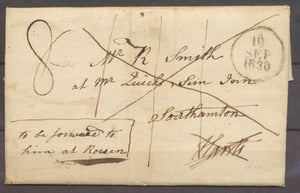 8
Mr R Smith
at Mr Quick's Sun Inn
Southamton
Hants
to be forward to
him at Rouen
16
SEP
1830